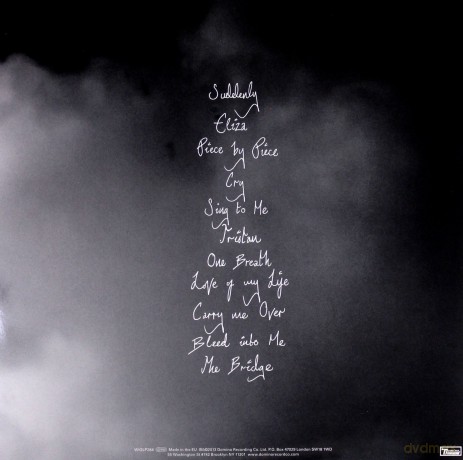 Suddenly
Eliza
Piece by Piece
Cry
Sing to Me
Tristan
One Breath
Love of my Life
Carry me Over
Bleed into Me
The Bridge
Made in the EU. Domino Recording Co Ltd. P.O. Box 47029 London SW18 1WD
Brooklyn NY 11201 www.dominorecordco.com
Domino
dvdmax